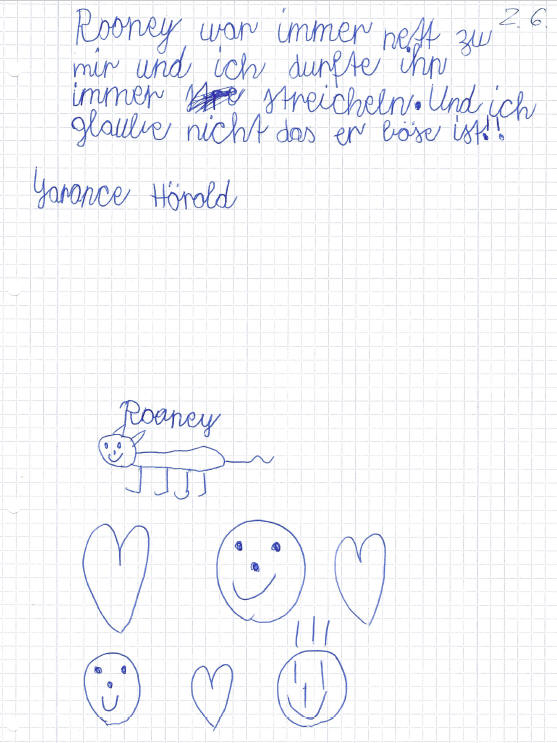 2.6.
Rooney war immer nett zu
mir und ich durfte ihn
immer streicheln. Und ich
glaube nicht das er böse ist!!
Yarance Hörold
Rooney